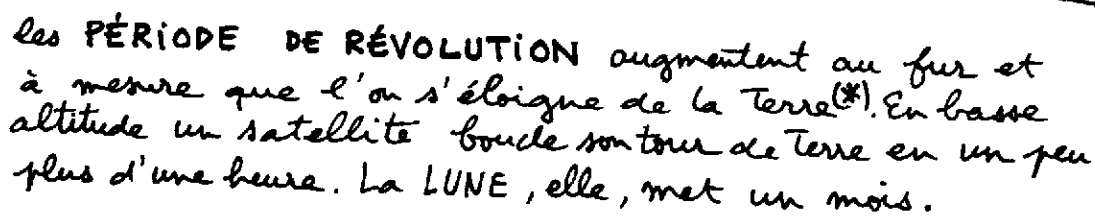 les PÉRiODE DE RÉVOLUTiON augmentent au fur et
à mesure que l'on s'éloigne de la Terre(*). En basse
altitude un satellite boucle son tour de Terre en un peu
plus d'une heure. La LUNE, elle, met un mois.